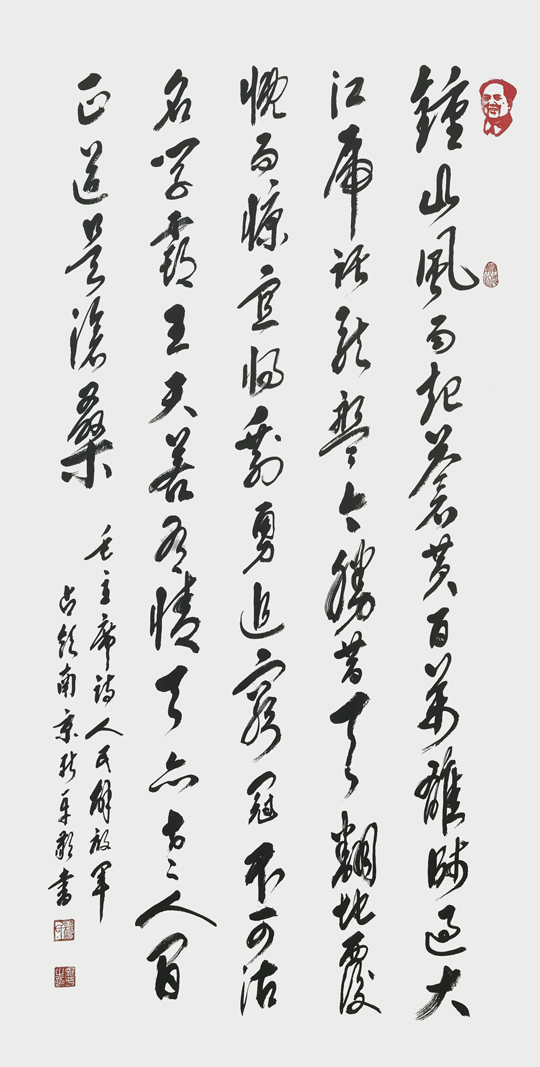 鍾山風雨起蒼黄百萬雄師過大
江虎踞龍盤今勝昔天翻地覆
慨而慷宜將剩勇追窮寇不可沽
名學霸王天若有情天亦老人間
正道是滄桑
毛主席詩人民解放軍
占領南京 書